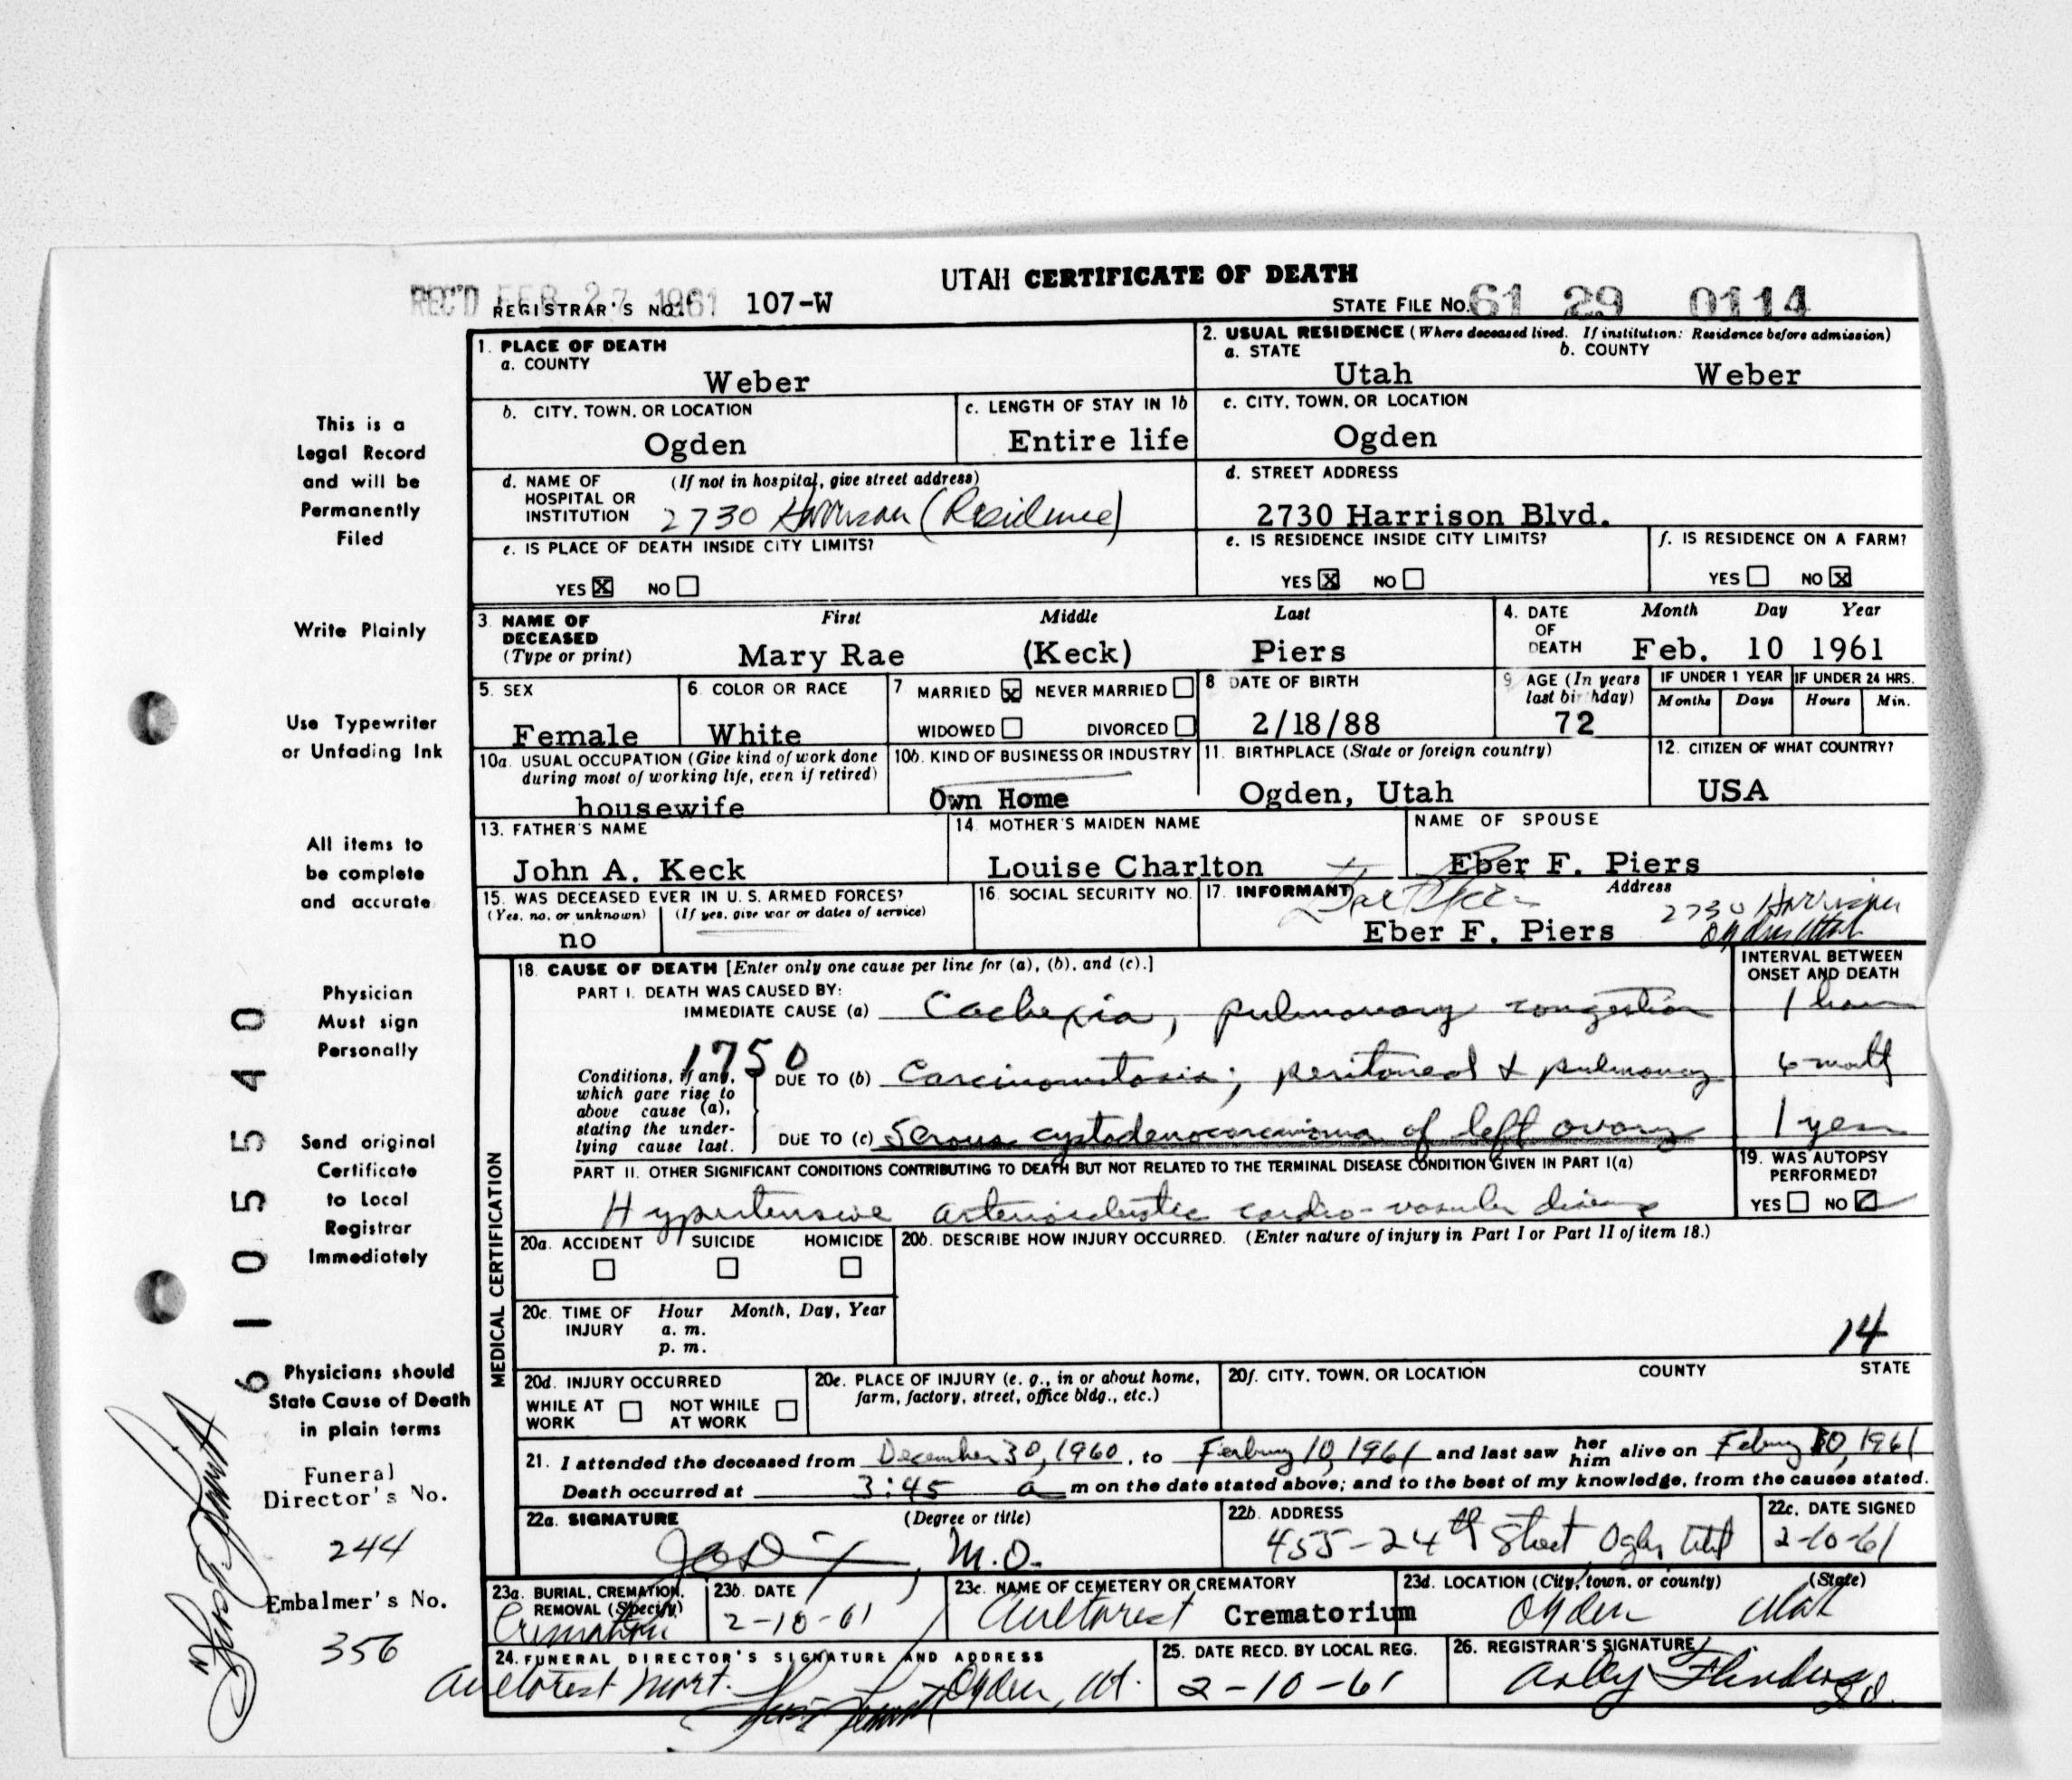 UTAH CERTIFICATE OF DEATH
REC'D FEB 27 1961
REGISTRAR'S NO. 107-W
STATE FILE NO. 61 29 0114
1. PLACE OF DEATH
a. COUNTY
Weber
2. USUAL RESIDENCE (Where deceased lived. If institution: Residence before admission)
a. STATE b. COUNTY
Utah Weber
b. CITY, TOWN, OR LOCATION
Ogden
c. LENGTH OF STAY IN 1b
Entire life
c. CITY, TOWN, OR LOCATION
Ogden
d. NAME OF (If not in hospital, give street address)
HOSPITAL OR
INSTITUTION 2730 Harrison (Residence)
d. STREET ADDRESS
2730 Harrison Blvd.
e. IS PLACE OF DEATH INSIDE CITY LIMITS?
YES X NO
e. IS RESIDENCE INSIDE CITY LIMITS?
YES X NO
f. IS RESIDENCE ON A FARM?
YES NO X
3. NAME OF DECEASED (Type or print)
First Middle Last
Mary Rae (Keck) Piers
4. DATE OF DEATH
Month Day Year
Feb. 10 1961
5. SEX
Female
6. COLOR OR RACE
White
7 MARRIED X NEVER MARRIED
WIDOWED DIVORCED
8 DATE OF BIRTH
2/18/88
9 AGE (In years last birthday)
72
IF UNDER 1 YEAR
Months Days
IF UNDER 24 HRS.
Hours Min.
10a. USUAL OCCUPATION (Give kind of work done
during most of working life, even if retired)
housewife
10b. KIND OF BUSINESS OR INDUSTRY
Own Home
11. BIRTHPLACE (State or foreign country)
Ogden, Utah
12. CITIZEN OF WHAT COUNTRY?
USA
13. FATHER'S NAME
John A. Keck
14. MOTHER'S MAIDEN NAME
Louise Charlton
NAME OF SPOUSE
Eber F. Piers
15. WAS DECEASED EVER IN U.S. ARMED FORCES?
(Yes, no, or unknown) (If yes, give war or dates of service)
no
16. SOCIAL SECURITY NO.
17. INFORMANT Address
Eber F. Piers
2730 Harrison
Ogden Utah
MEDICAL CERTIFICATION
18. CAUSE OF DEATH [Enter only one cause per line for (a), (b), and (c).]
INTERVAL BETWEEN
ONSET AND DEATH
PART I. DEATH WAS CAUSED BY:
IMMEDIATE CAUSE (a) Cachexia, pulmonary congestion 1 hour
1750
Conditions, if any,
which gave rise to
above cause (a),
stating the under-
lying cause last.
DUE TO (b) Carcinomatosis; peritoneal & pulmonary 6 month
DUE TO (c) Serous cystadenocarcinoma of left ovary 1 year
PART II. OTHER SIGNIFICANT CONDITIONS CONTRIBUTING TO DEATH BUT NOT RELATED TO THE TERMINAL DISEASE CONDITION GIVEN IN PART I(a)
Hypertensive arteriosclerotic cardio-vascular disease
19. WAS AUTOPSY
PERFORMED?
YES NO
20a. ACCIDENT SUICIDE HOMICIDE
20b. DESCRIBE HOW INJURY OCCURRED. (Enter nature of injury in Part I or Part II of item 18.)
20c. TIME OF INJURY
Hour Month, Day, Year
a. m.
p. m.
14
20d. INJURY OCCURRED
WHILE AT WORK NOT WHILE AT WORK
20e. PLACE OF INJURY (e. g., in or about home,
farm, factory, street, office bldg., etc.)
20f. CITY, TOWN, OR LOCATION COUNTY STATE
21. I attended the deceased from December 30, 1960, to Ferbury 10, 1961 and last saw her him alive on Febury 10, 1961
Death occurred at 3:45 a m on the date stated above; and to the best of my knowledge, from the causes stated.
22a. SIGNATURE (Degree or title)
M.D.
22b. ADDRESS
455-24th Street Ogden Utah
22c. DATE SIGNED
2-10-61
23a. BURIAL, CREMATION,
REMOVAL (Specify)
Cremation
23b. DATE
2-10-61
23c. NAME OF CEMETERY OR CREMATORY
Aultorest Crematorium
23d. LOCATION (City, town, or county) (State)
Ogden Utah
24. FUNERAL DIRECTOR'S SIGNATURE AND ADDRESS
Aultorest Mort. Ogden, Ut.
25. DATE RECD. BY LOCAL REG.
2-10-61
26. REGISTRAR'S SIGNATURE
This is a
Legal Record
and will be
Permanently
Filed
Write Plainly
Use Typewriter
or Unfading Ink
All items to
be complete
and accurate
Physician
Must sign
Personally
Send original
Certificate
to Local
Registrar
Immediately
Physicians should
State Cause of Death
in plain terms
Funeral
Director's No.
244
Embalmer's No.
356
6105540